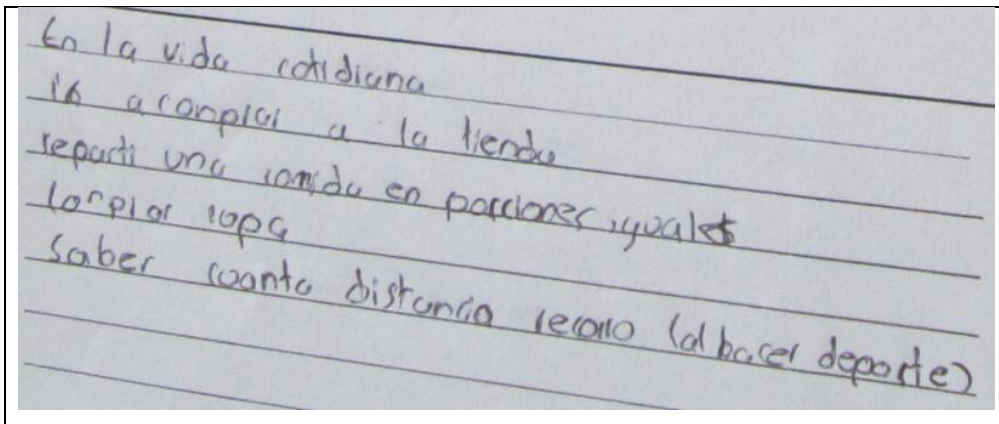 En la vida cotidiana
ir a conprar a la tienda
reparti una comida en porciones iguales
conprar ropa
saber cuanta distancia recorro (al hacer deporte)